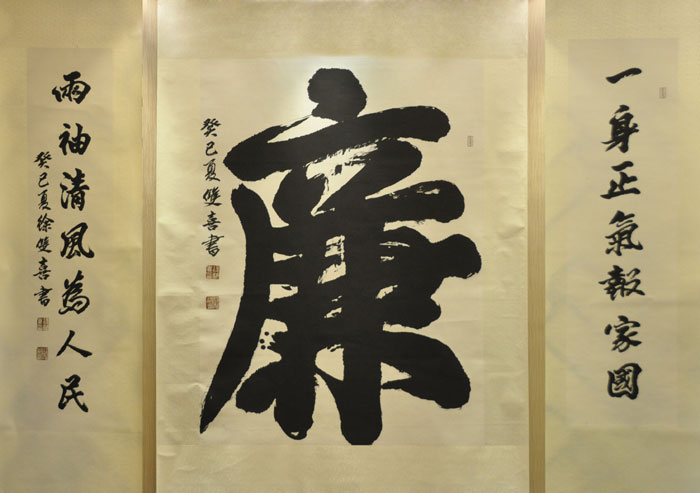 一身正氣報家國
廉
癸巳夏雙喜書
兩袖清風為人民
癸巳夏徐雙喜書